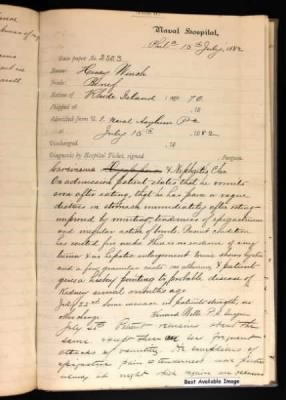 Naval Hospital,
Phila 15th July, 1882
Case paper No. 2503
Name: Henry
Rate: Benef
Native of Rhode Island : age 70
Shipped at 18
Admitted from U.S. Naval Asylum Pa
July 15th 1882
Discharged 18
Diagnosis by Hospital Ticket, signed Surgeon
Carcinoma & Nephritis Chr
On admission patient states that he vomits
soon after eating, that he has pain & vague
distress in stomach immediately after eating
tenderness of epigastrium
and irregular action of bowels. Present condition
is There is no evidence of any
tumor & no hepatic enlargement. Urine shows hyaline
and a few granular casts, no albumen, & patient
gives a history pointing to probable disease of
Kidney several months ago
July 22nd Some increase in patient's strength, no
other change. Howard Wells P.A. Surgeon
July 25th Patient remains about the
same except there are less frequent
attacks of vomiting. He complains of
epigastric pain & tenderness
at night which again
Best Available Image